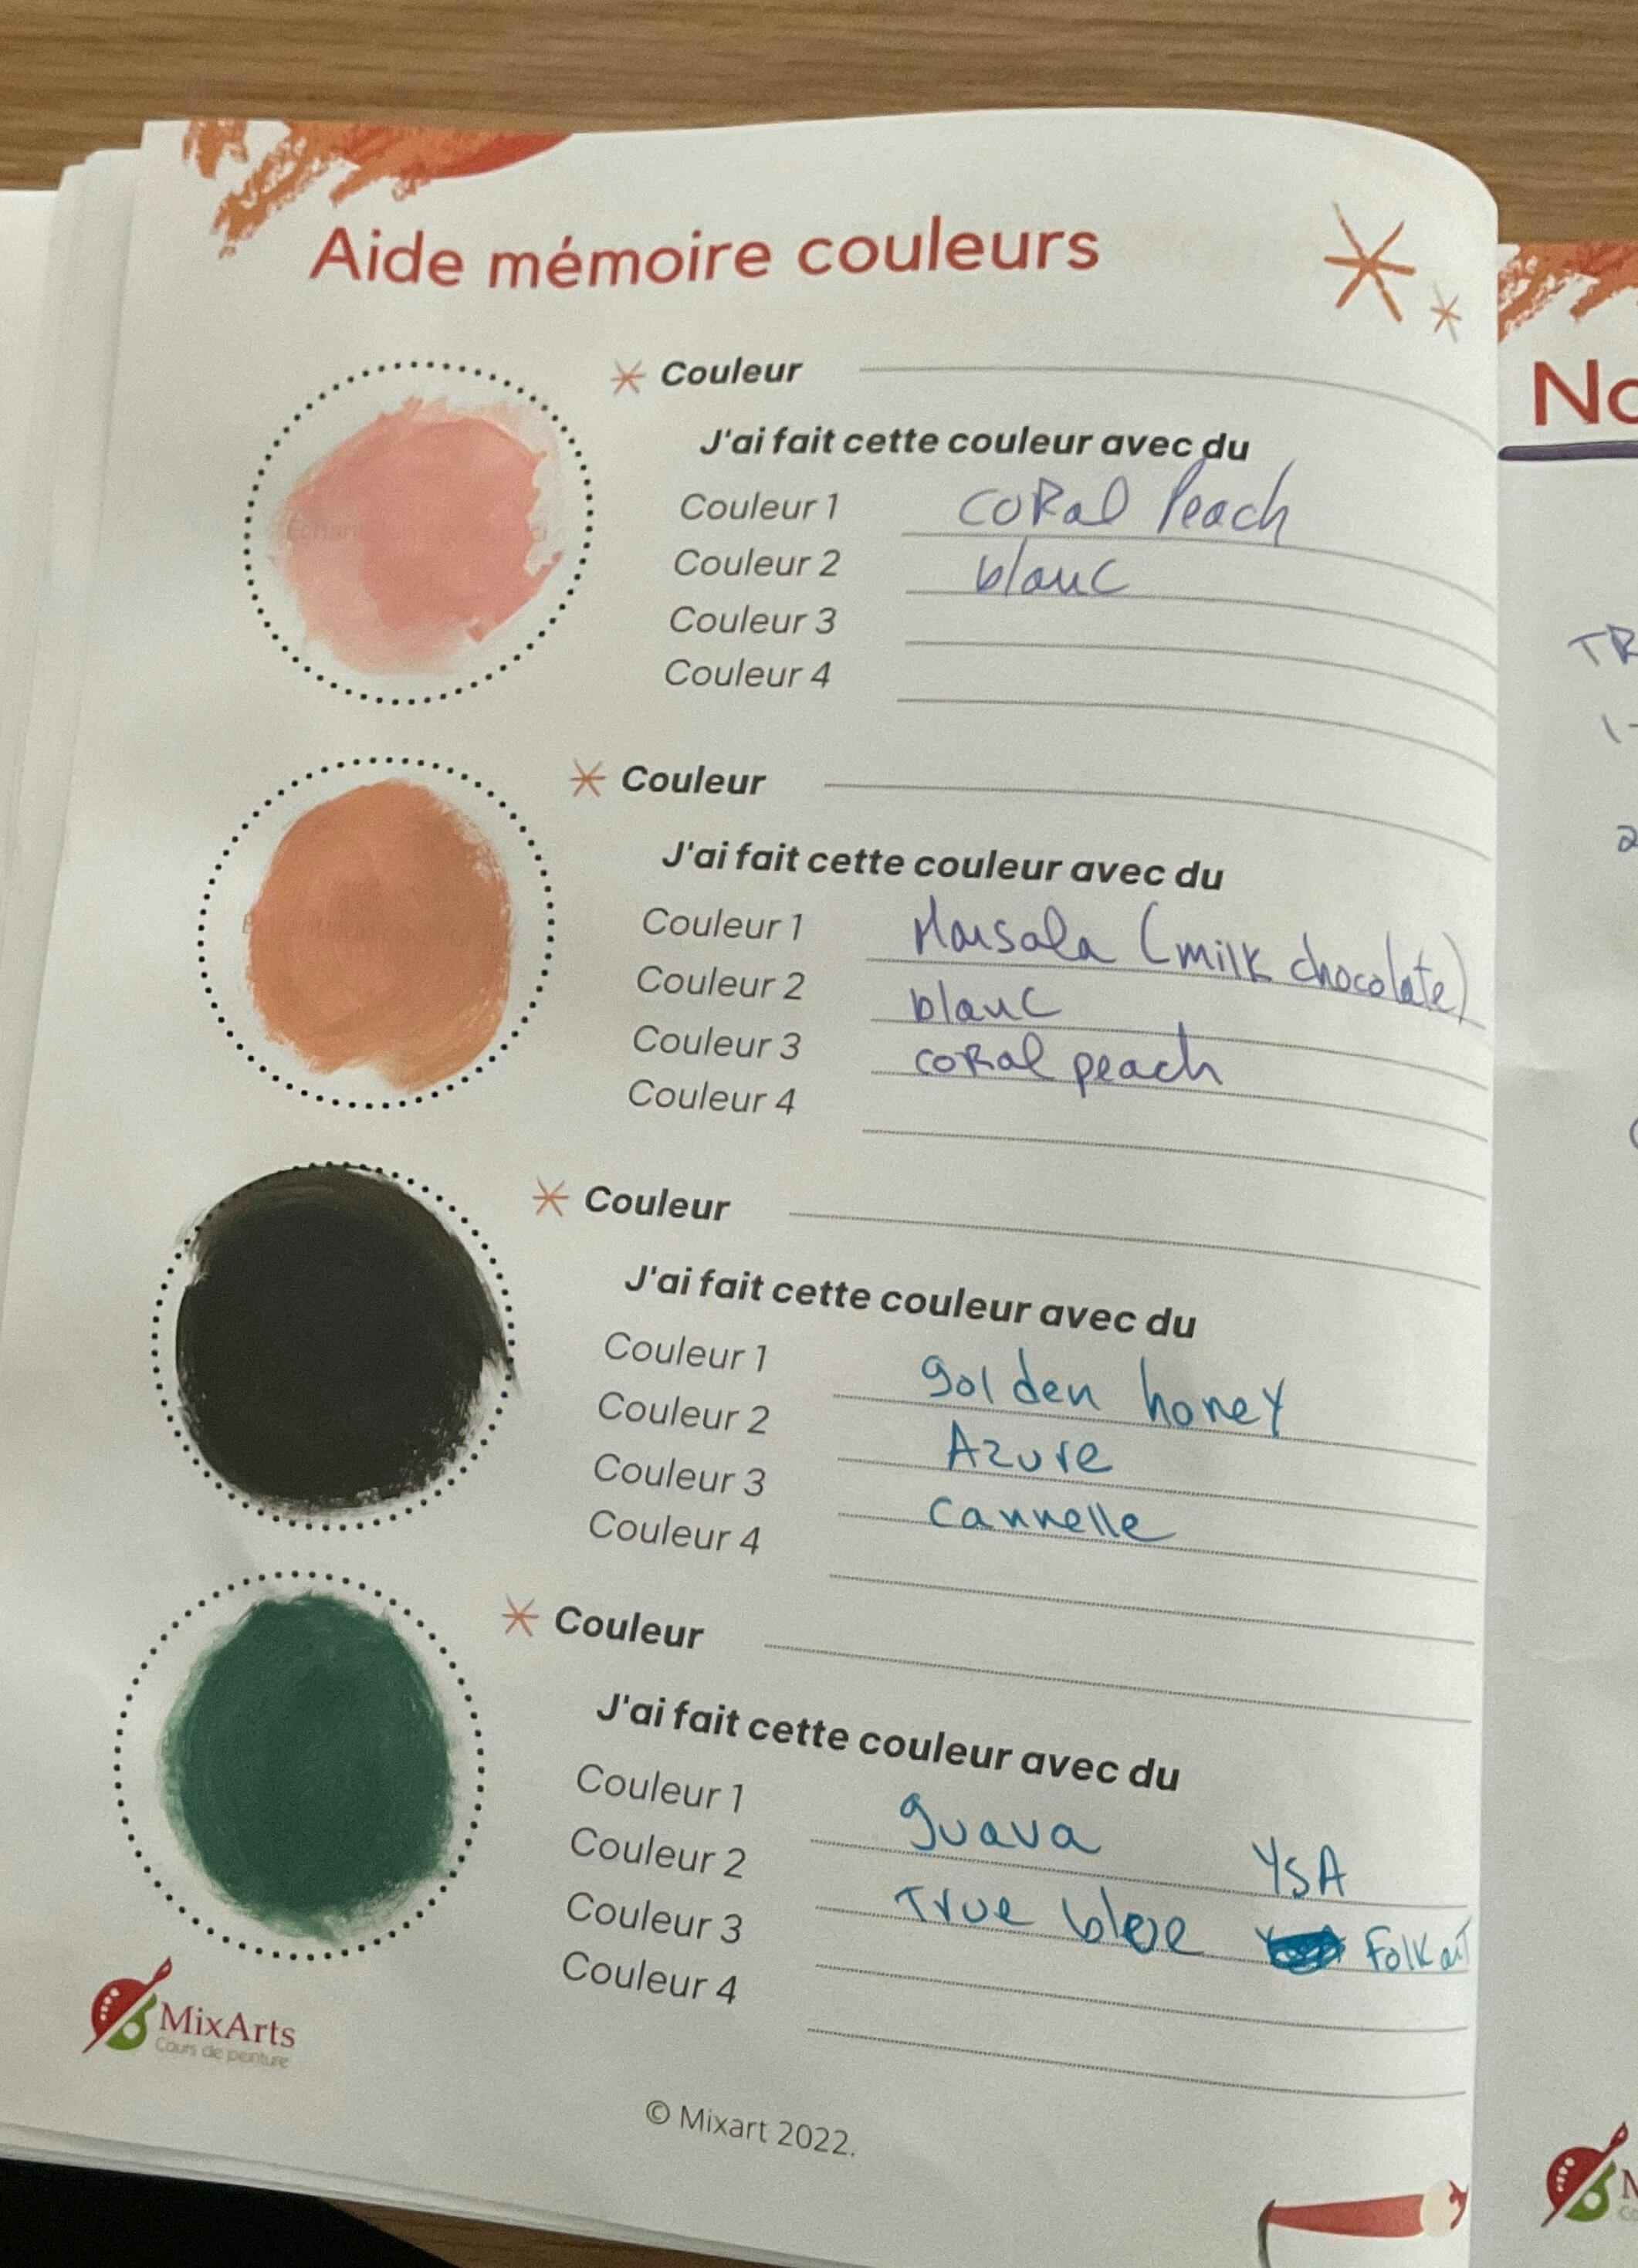 Aide mémoire couleurs
Couleur
J'ai fait cette couleur avec du
Couleur 1 coRal Peach
Couleur 2 blanc
Couleur 3
Couleur 4
Couleur
J'ai fait cette couleur avec du
Couleur 1 Marsala (milk chocolate)
Couleur 2 blanc
Couleur 3 coRal peach
Couleur 4
Couleur
J'ai fait cette couleur avec du
Couleur 1 golden honey
Couleur 2 Azure
Couleur 3 cannelle
Couleur 4
Couleur
J'ai fait cette couleur avec du
Couleur 1 guava YSA
Couleur 2 True blue Folkart
Couleur 3
Couleur 4
MixArts
Cours de peinture
© Mixart 2022.
No
TR
1-
2